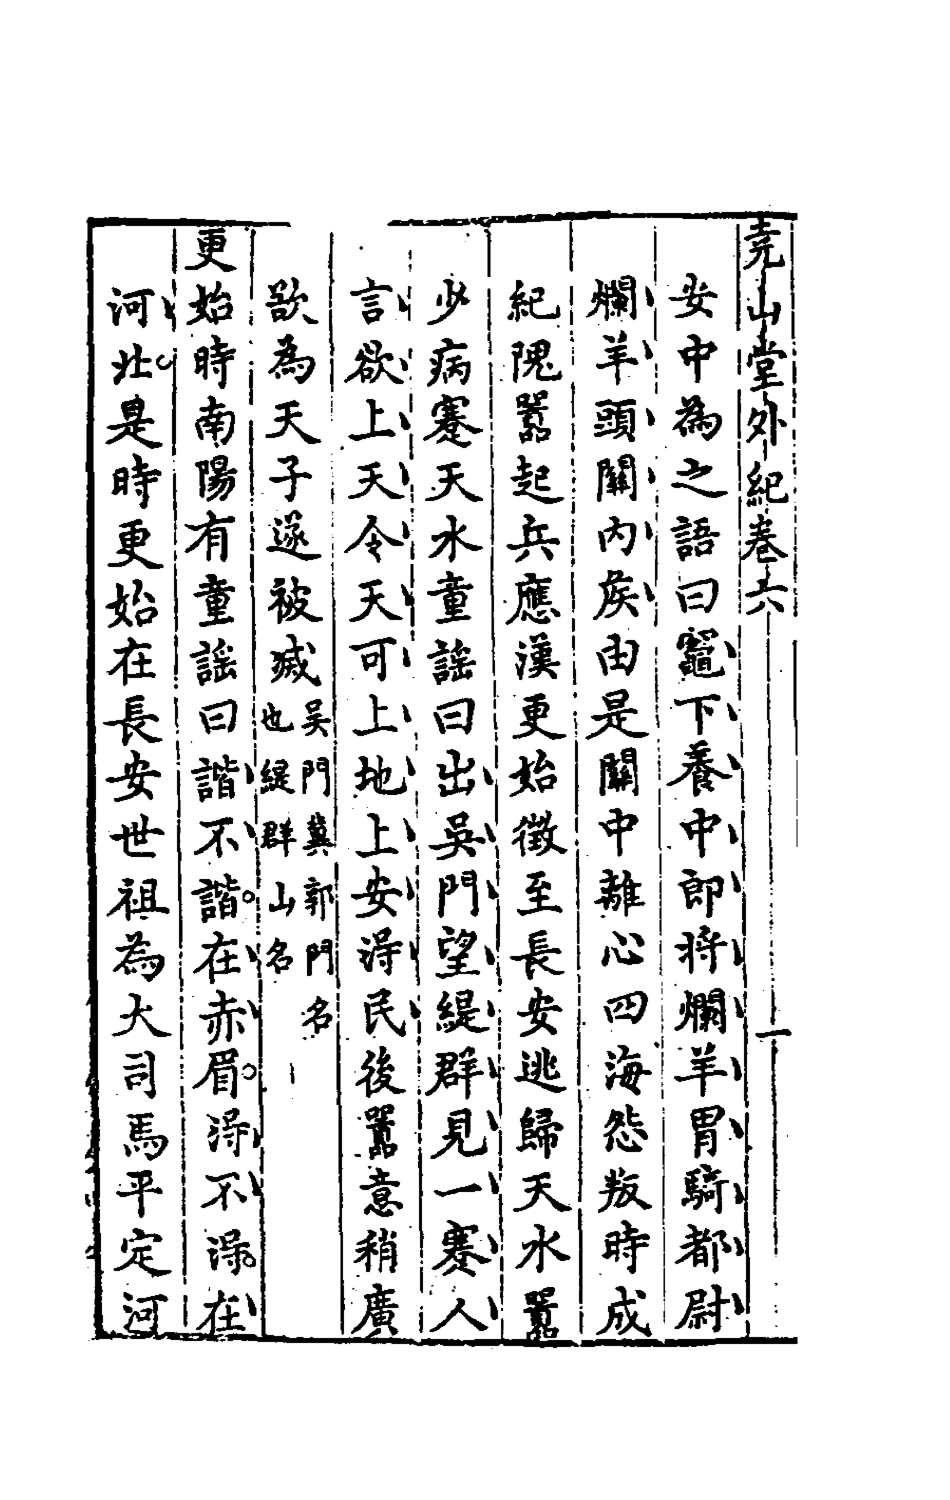 堯山堂外紀卷六 一
安中為之語曰竈下養中郎將爛羊胃騎都尉
爛羊頭關內侯由是關中離心四海怨叛時成
紀隗囂起兵應漢更始徵至長安逃歸天水囂
少病蹇天水童謡曰出吳門望緹群見一蹇人
言欲上天令天可上地上安得民後囂意稍廣
欲為天子遂被滅吳門冀郭門名也緹群山名
更始時南陽有童謡曰諧不諧在赤眉得不得在
河北是時更始在長安世祖為大司馬平定河